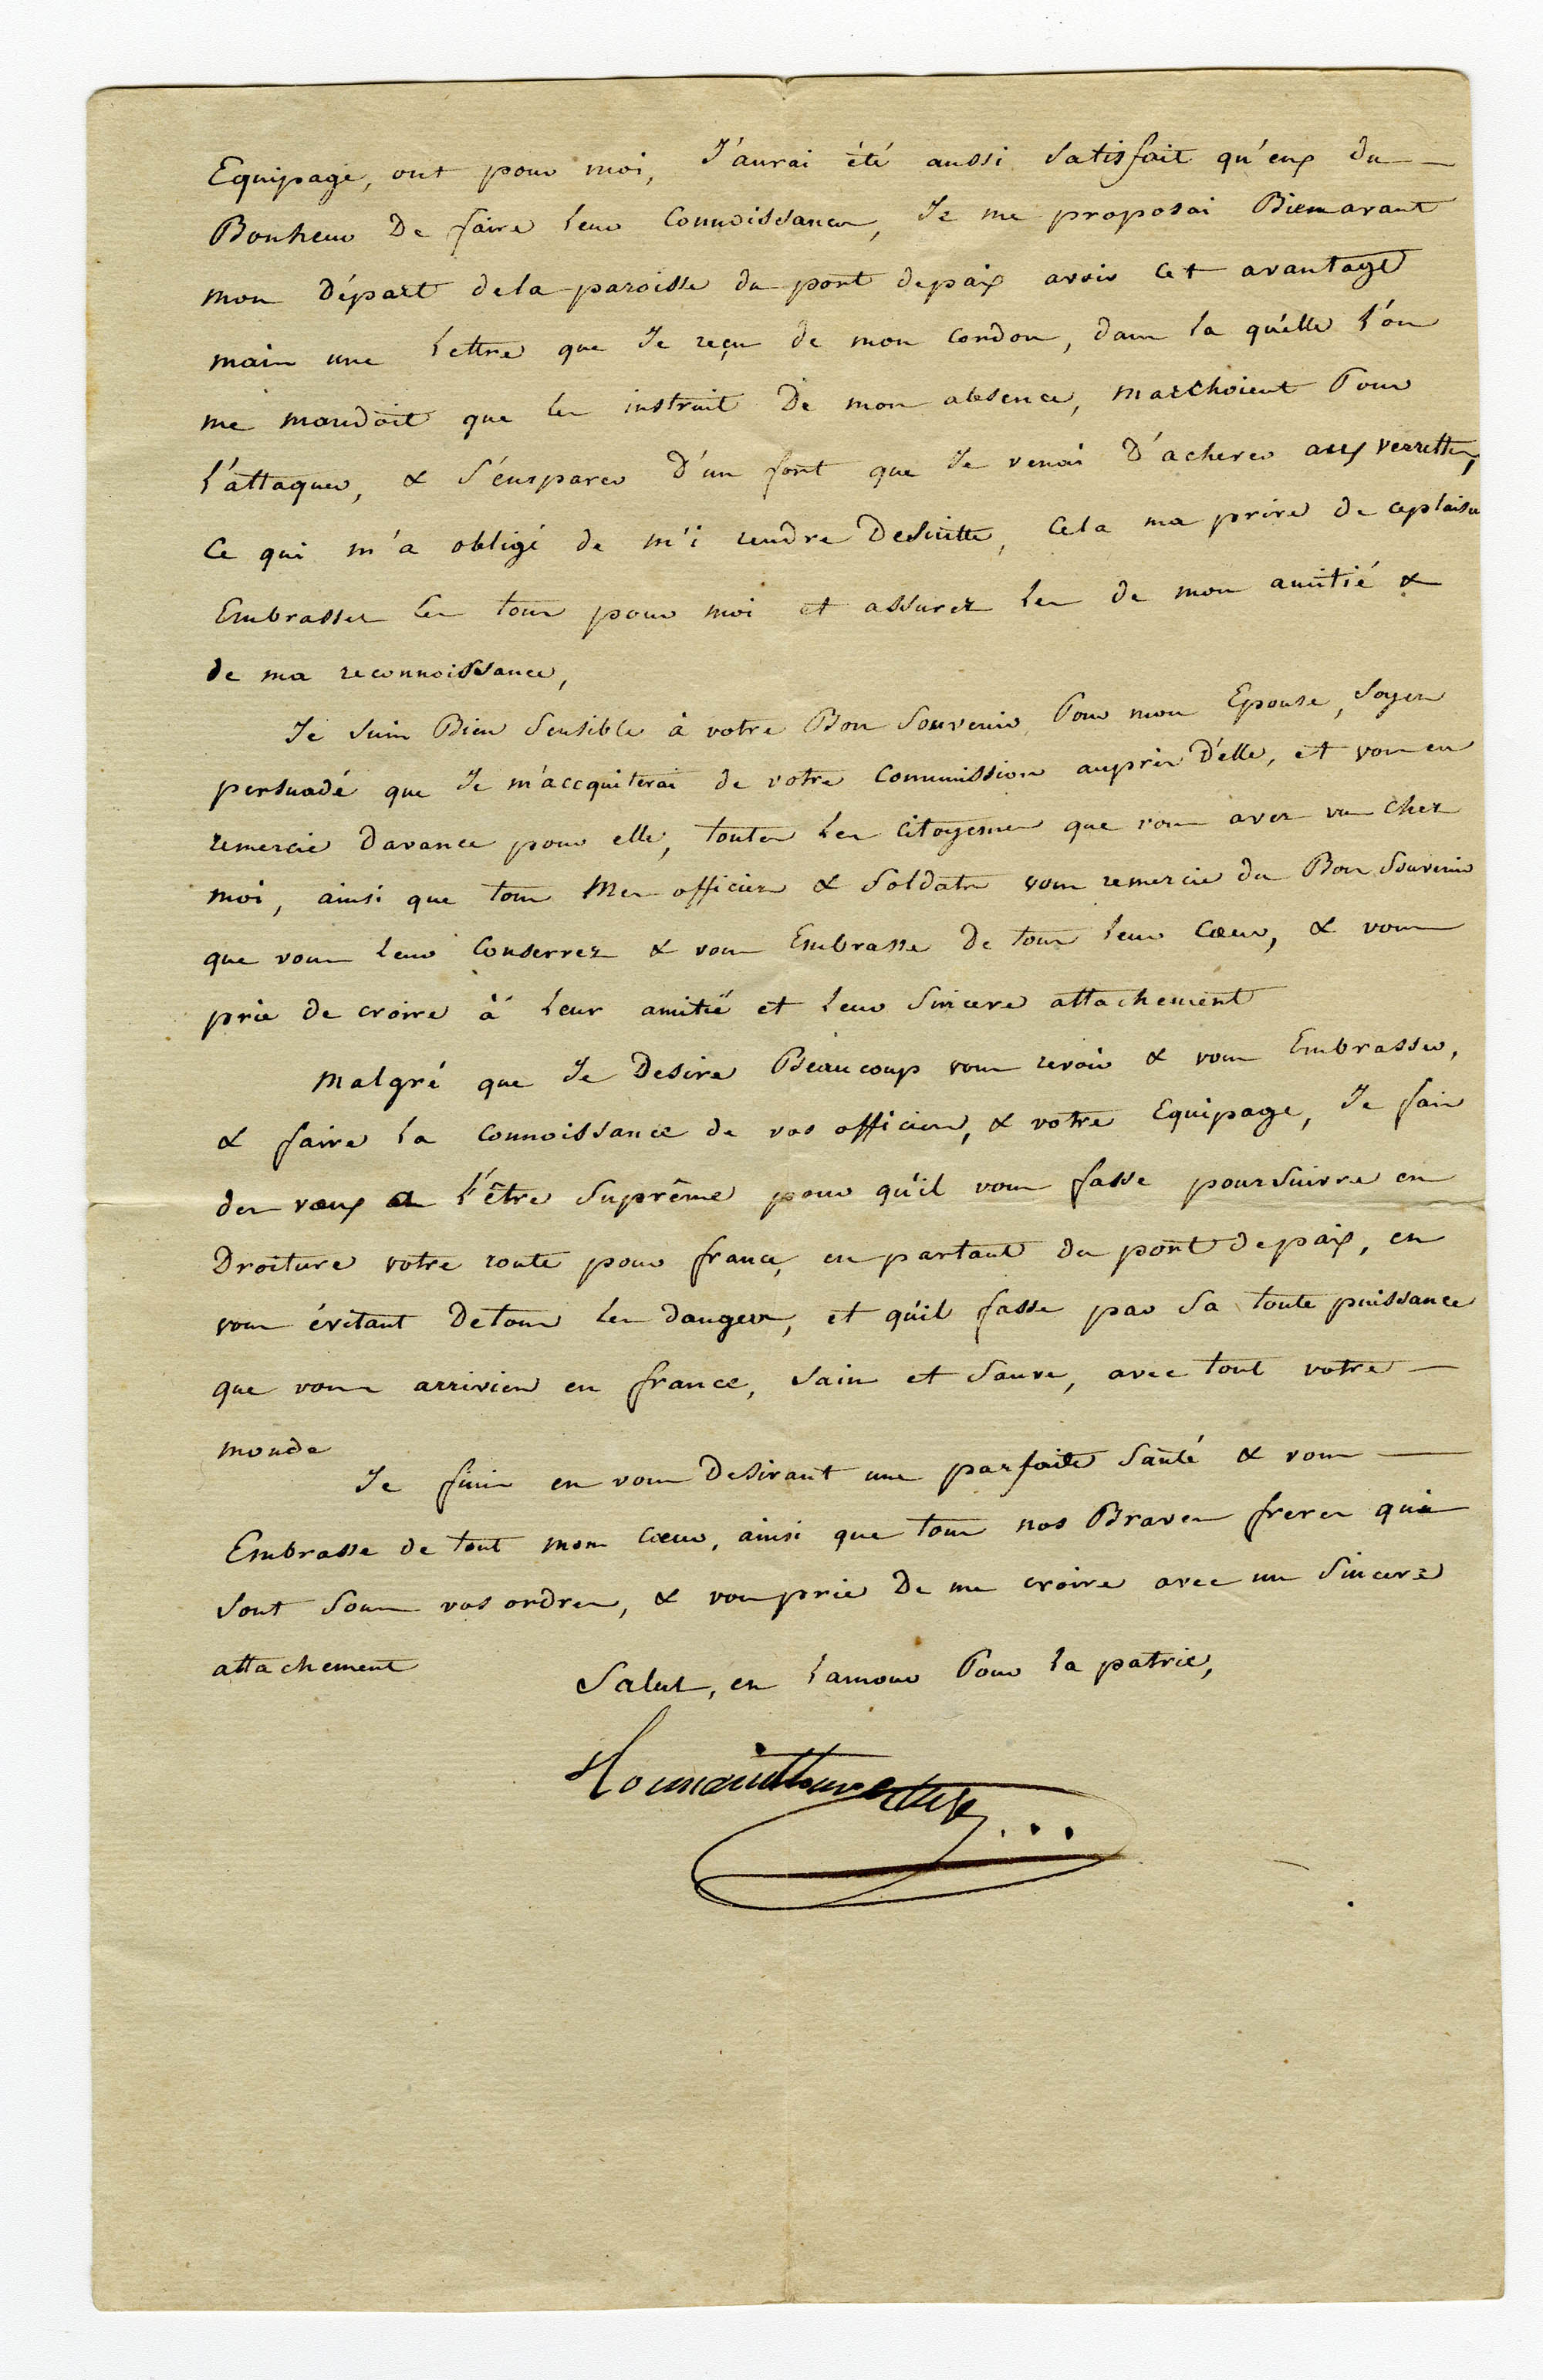 Equipage, ont pour moi, J'aurai été aussi satisfait qu'eux du
Bonheur De faire leur Connoissances, Je me proposai Bien avant
mon Départ de la paroisse du port depaix avoir cet avantage
mais une lettre que Je reçu de mon Cordon, dans la qu'elle l'on
me mandoit que les instruit De mon absence, marchoient Pour
l'attaquer, & s'emparer D'un fort que Je venois D'achever aux verrettes,
Ce qui m'a obligé de m'i rendre Desuitte, Cela ma privé de ceplaisir
Embrasser les tous pour moi et assurez les de mon amitié &
de ma reconnoissance,
Je suis Bien Sensible à votre Bon Souvenir Pour mon Epouse, Soyez
persuadé que Je m'accquiterai de votre Commission auprès D'elle, et vous en
remercie Davance pour elle, toutes les Citoyennes que vous avez vu chez
moi, ainsi que tous Mes officiers & Soldats vous remercie du Bon Souvenir
que vous leur Conservez & vous Embrasse De tous leur Cœur, & vous
prie de croire à leur amitié et leur Sincere attachement
Malgré que Je Desire Beaucoup vous revoir & vous Embrasser,
& faire la Connoissance de vos officiers, & votre Equipage, Je fais
des vœux a l'être Suprême pour qu'il vous fasse poursuivre en
Droiture votre route pour france, en partant du port depaix, en
vous évitant Detous les dangers, et qu'il fasse par Sa toute puissance
que vous arriviez en france, Sain et Sauve, avec tout votre
monde
Je finis en vous Desirant une parfaite Santé & vous
Embrasse de tout mon Cœur, ainsi que tous nos Braves freres qui
sont Sous vos ordres, & vous prie De me croire avec un Sincere
attachement
Salut, en lamour Pour la patrie,
Toussaint Louverture